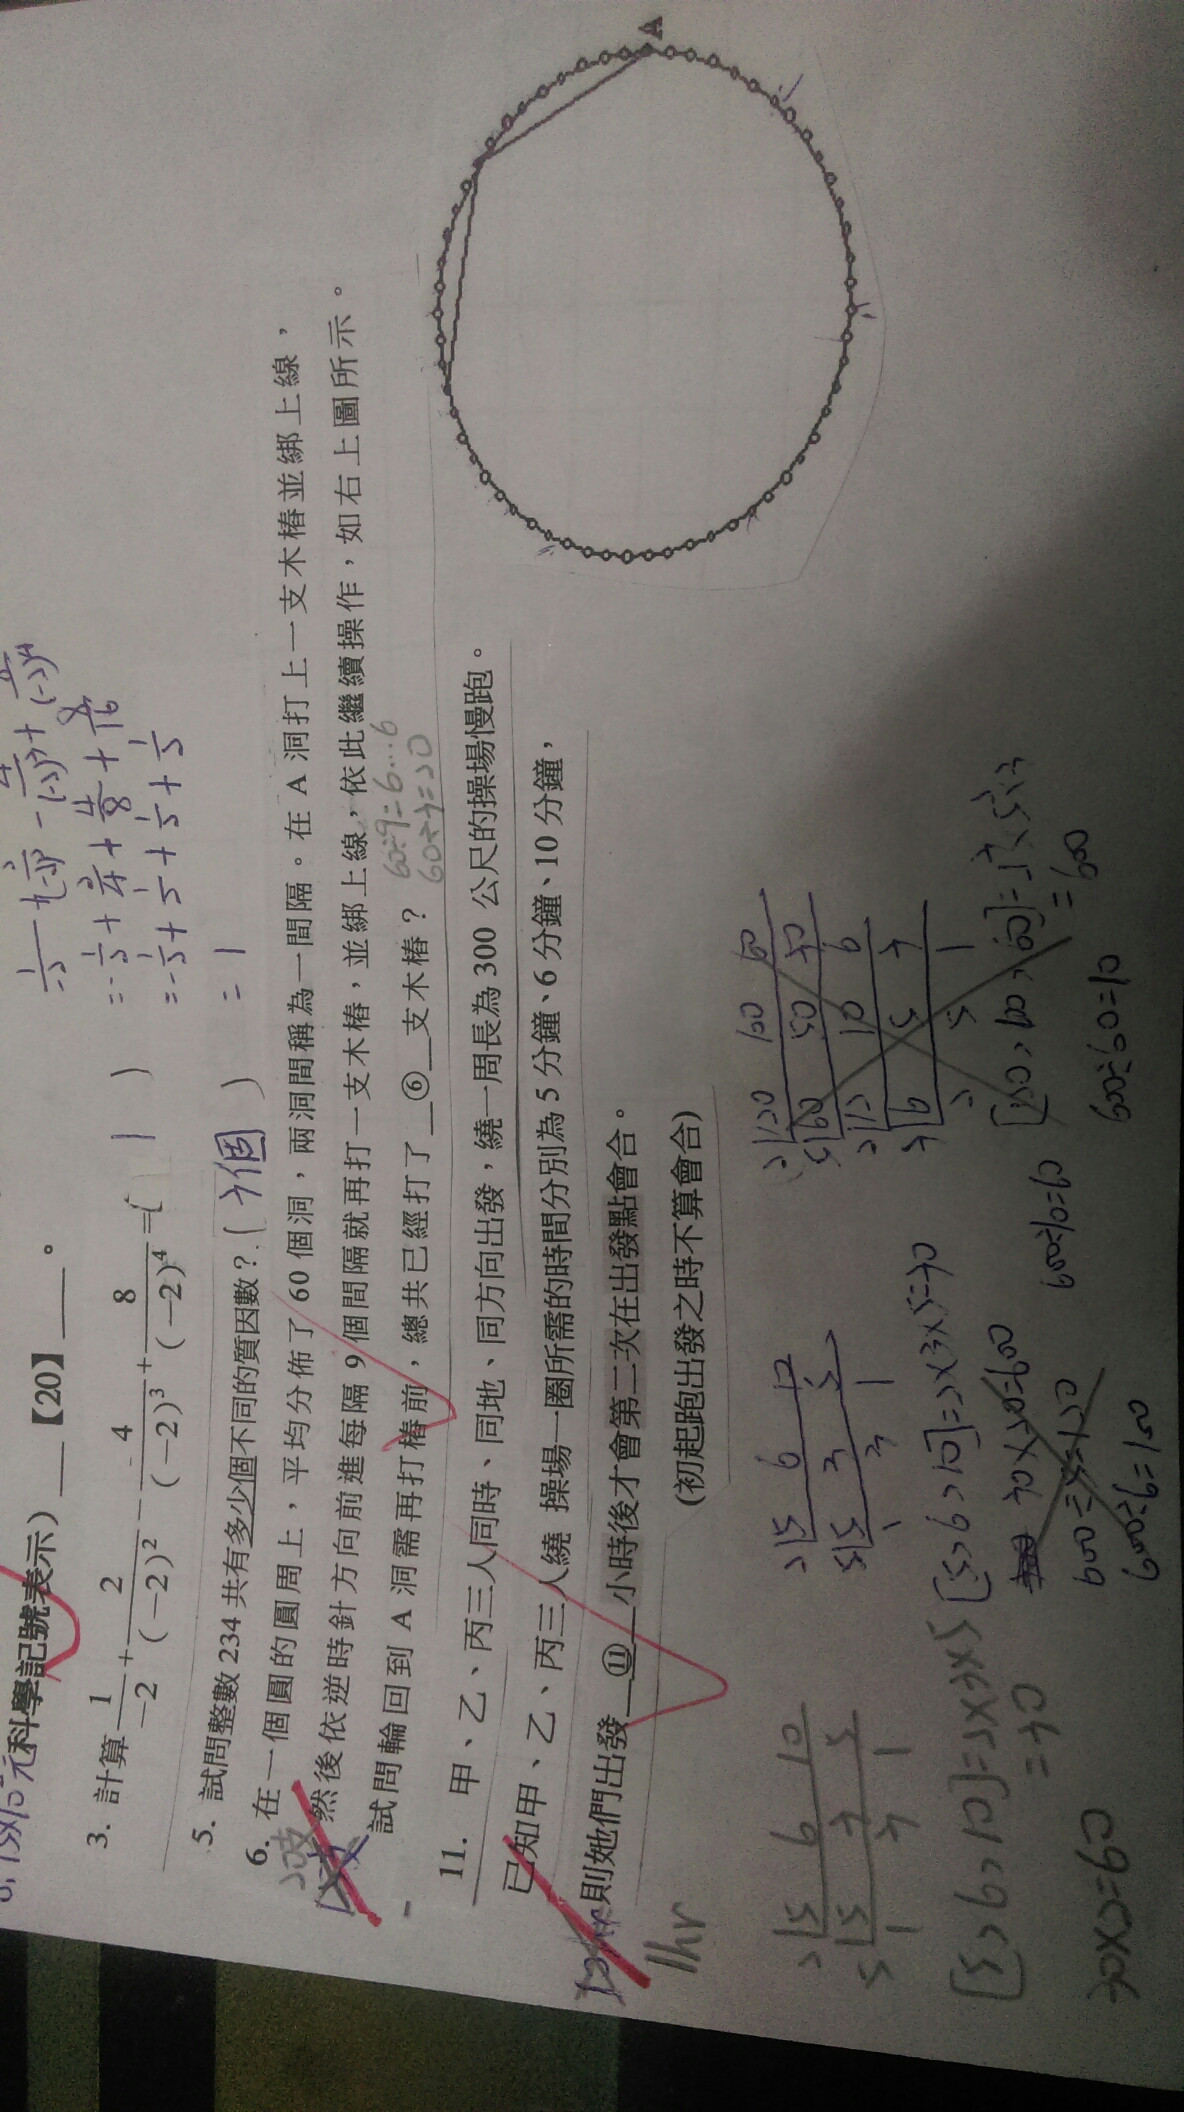 元科學記號表示）____【20】____。
3. 計算 1/−2 + 2/(−2)² − 4/(−2)³ + 8/(−2)⁴ =( 1 )
= −1/2 + 2/4 + 4/8 + 8/16
= −1/2 + 1/2 + 1/2 + 1/2
= 1
5. 試問整數 234 共有多少個不同的質因數？( 3個 )
6. 在一個圓的圓周上，平均分佈了 60 個洞，兩洞間稱為一間隔。在 A 洞打上一支木樁並綁上線，
然後依逆時針方向前進每隔 9 個間隔就再打一支木樁，並綁上線，依此繼續操作，如右上圖所示。
試問輪回到 A 洞需再打樁前，總共已經打了__⑥__支木樁？
60÷9=6…6
60÷3=20
A
11. 甲、乙、丙三人同時、同地、同方向出發，繞一周長為 300 公尺的操場慢跑。
已知甲、乙、丙三人繞 操場一圈所需的時間分別為 5 分鐘、6 分鐘、10 分鐘，
則她們出發__⑪__小時後才會第二次在出發點會合。
(初起跑出發之時不算會合)
1hr
2 5 6 10
5 5 3 5
1 3 1
[5,6,10]=2×5×3
=30
30×2=60
2 5 6 10
5 5 3 5
1 3 1
[5,6,10]=2×3×5=30
600÷5=120
600÷6=100
600÷10=60
=600
600÷60=10